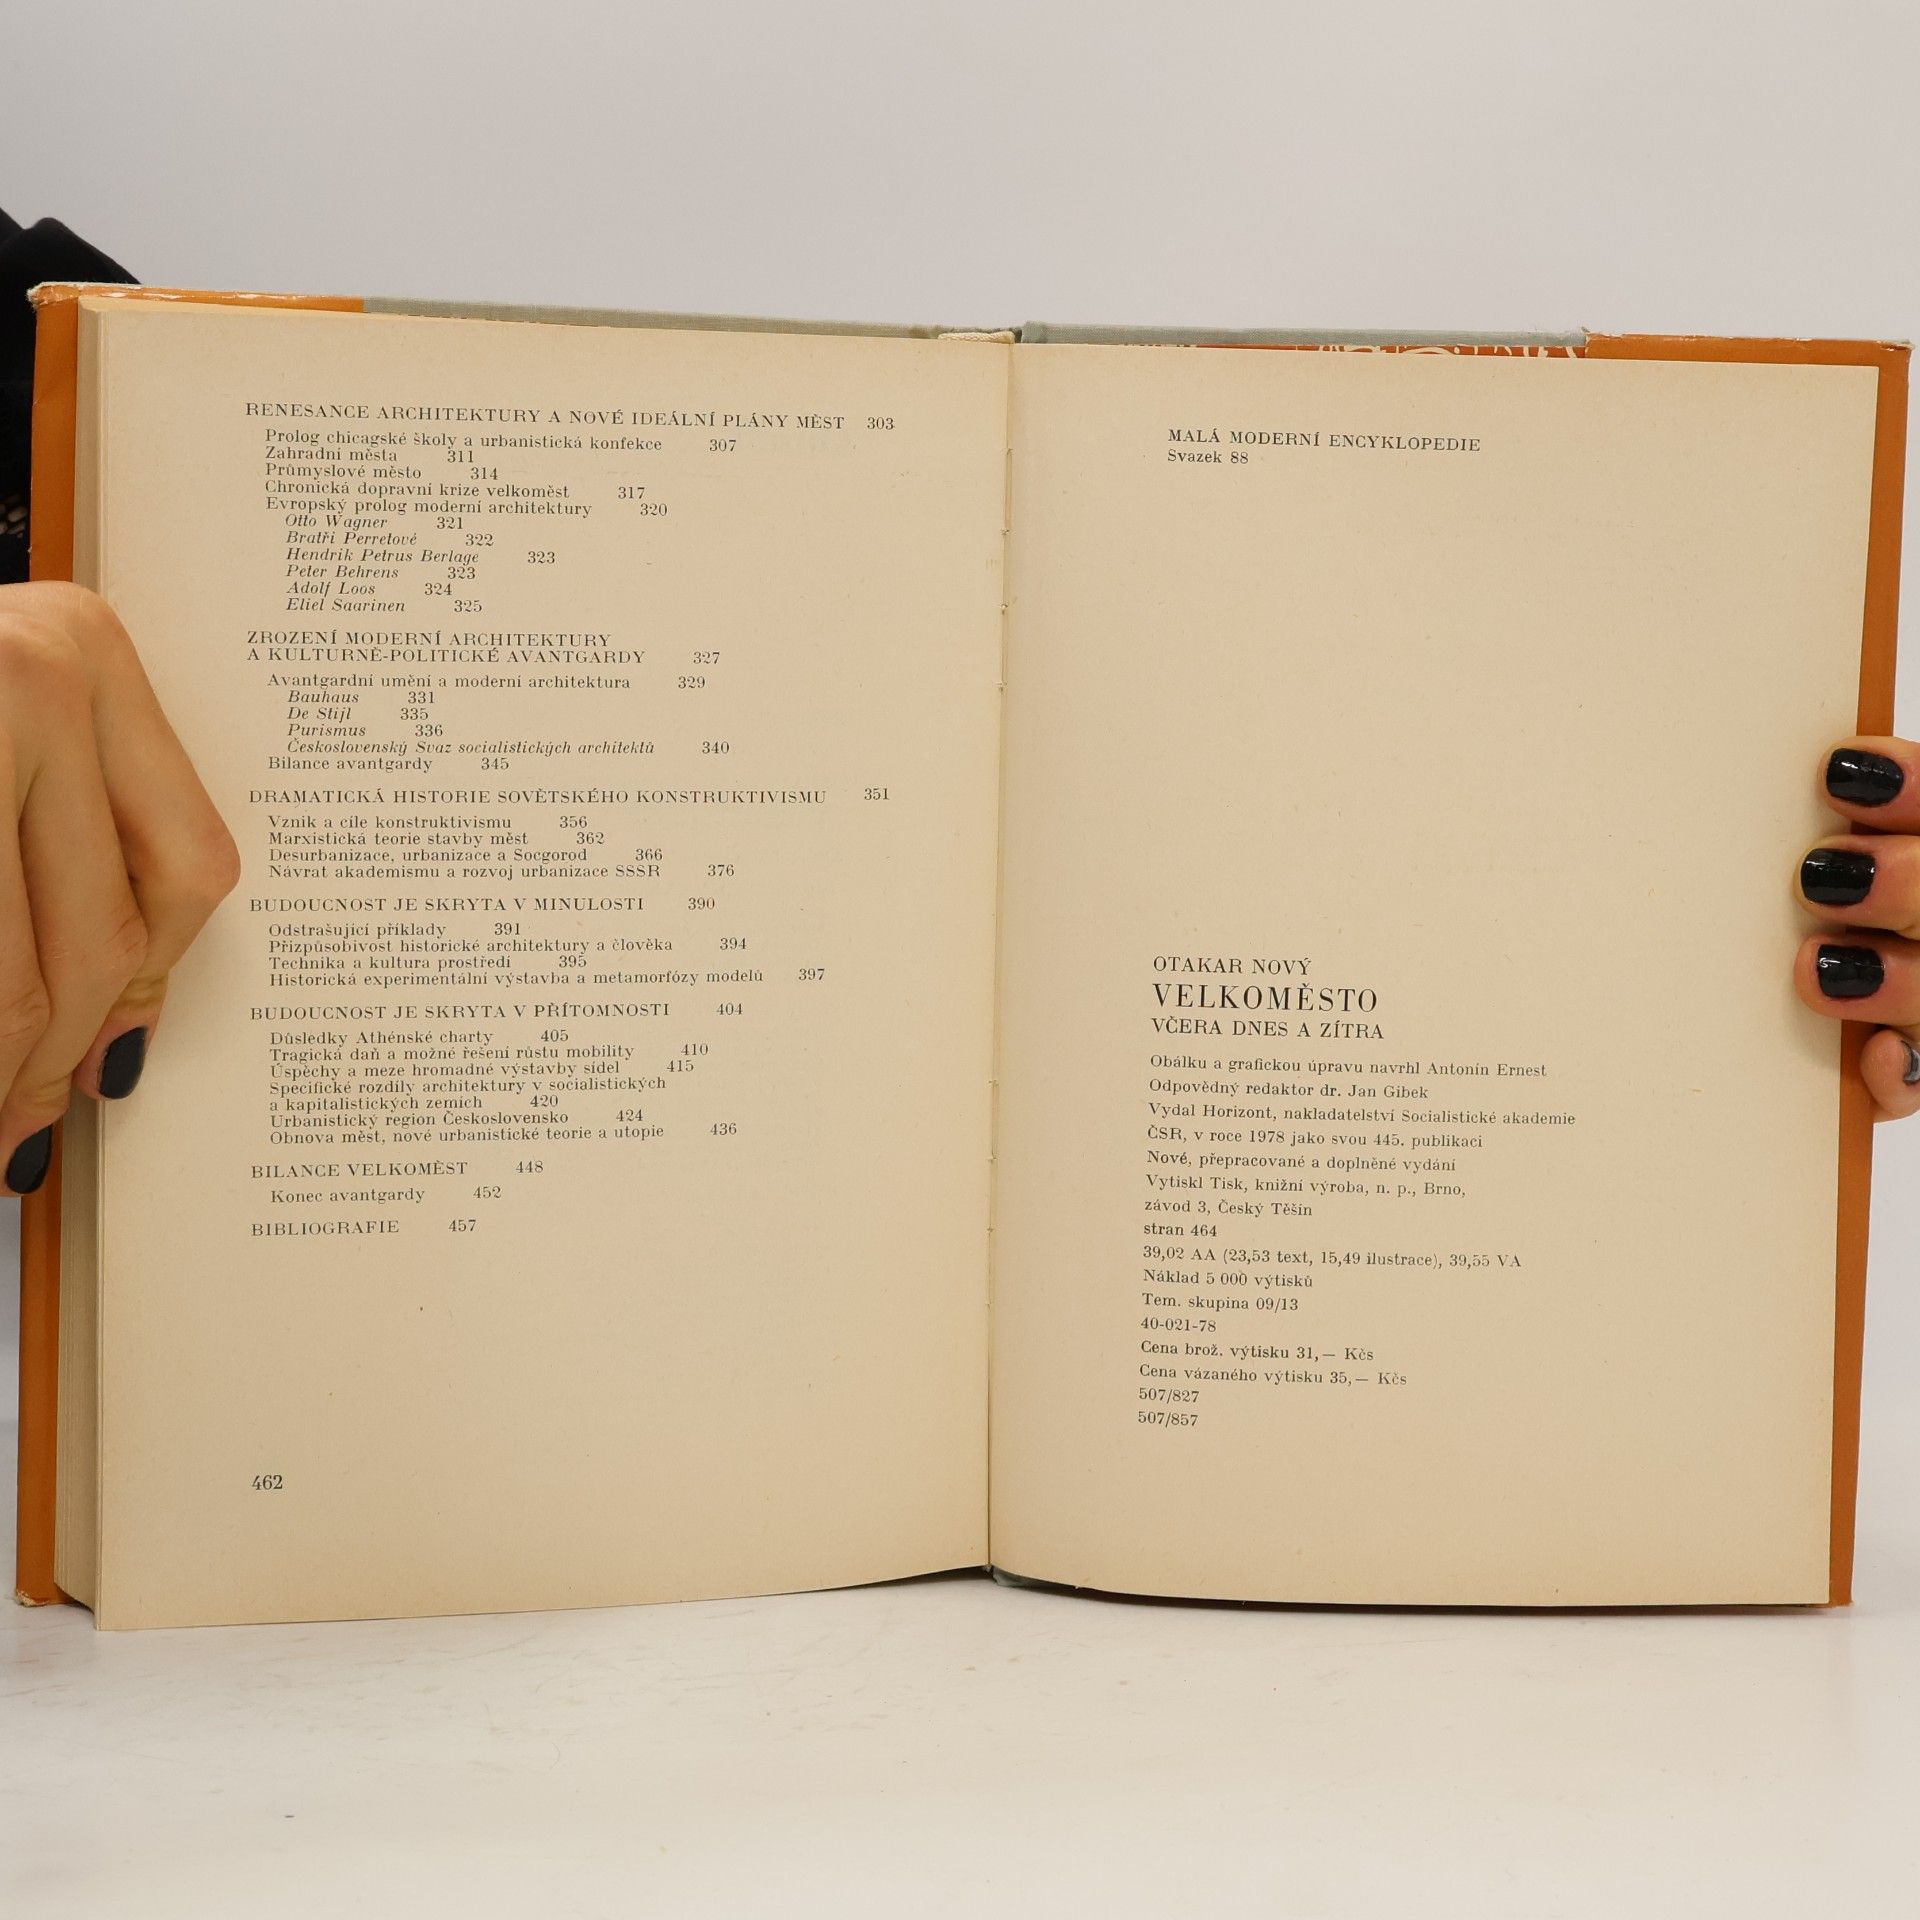 RENESANCE ARCHITEKTURY A NOVÉ IDEÁLNÍ PLÁNY MĚST 303
Prolog chicagské školy a urbanistická konfekce 307
Zahradní města 311
Průmyslové město 314
Chronická dopravní krize velkoměst 317
Evropský prolog moderní architektury 320
Otto Wagner 321
Bratři Perretové 322
Hendrik Petrus Berlage 323
Peter Behrens 323
Adolf Loos 324
Eliel Saarinen 325
ZROZENÍ MODERNÍ ARCHITEKTURY
A KULTURNĚ-POLITICKÉ AVANTGARDY 327
Avantgardní umění a moderní architektura 329
Bauhaus 331
De Stijl 335
Purismus 336
Československý Svaz socialistických architektů 340
Bilance avantgardy 345
DRAMATICKÁ HISTORIE SOVĚTSKÉHO KONSTRUKTIVISMU 351
Vznik a cíle konstruktivismu 356
Marxistická teorie stavby měst 362
Desurbanizace, urbanizace a Socgorod 366
Návrat akademismu a rozvoj urbanizace SSSR 376
BUDOUCNOST JE SKRYTA V MINULOSTI 390
Odstrašující příklady 391
Přizpůsobivost historické architektury a člověka 394
Technika a kultura prostředí 395
Historická experimentální výstavba a metamorfózy modelů 397
BUDOUCNOST JE SKRYTA V PŘÍTOMNOSTI 404
Důsledky Athénské charty 405
Tragická daň a možné řešení růstu mobility 410
Úspěchy a meze hromadné výstavby sídel 415
Specifické rozdíly architektury v socialistických
a kapitalistických zemích 420
Urbanistický region Československo 424
Obnova měst, nové urbanistické teorie a utopie 436
BILANCE VELKOMĚST 448
Konec avantgardy 452
BIBLIOGRAFIE 457
462
MALÁ MODERNÍ ENCYKLOPEDIE
Svazek 88
OTAKAR NOVÝ
VELKOMĚSTO
VČERA DNES A ZÍTRA
Obálku a grafickou úpravu navrhl Antonín Ernest
Odpovědný redaktor dr. Jan Gibek
Vydal Horizont, nakladatelství Socialistické akademie
ČSR, v roce 1978 jako svou 445. publikaci
Nové, přepracované a doplněné vydání
Vytiskl Tisk, knižní výroba, n. p., Brno,
závod 3, Český Těšín
stran 464
39,02 AA (23,53 text, 15,49 ilustrace), 39,55 VA
Náklad 5 000 výtisků
Tem. skupina 09/13
40-021-78
Cena brož. výtisku 31,— Kčs
Cena vázaného výtisku 35,— Kčs
507/827
507/857